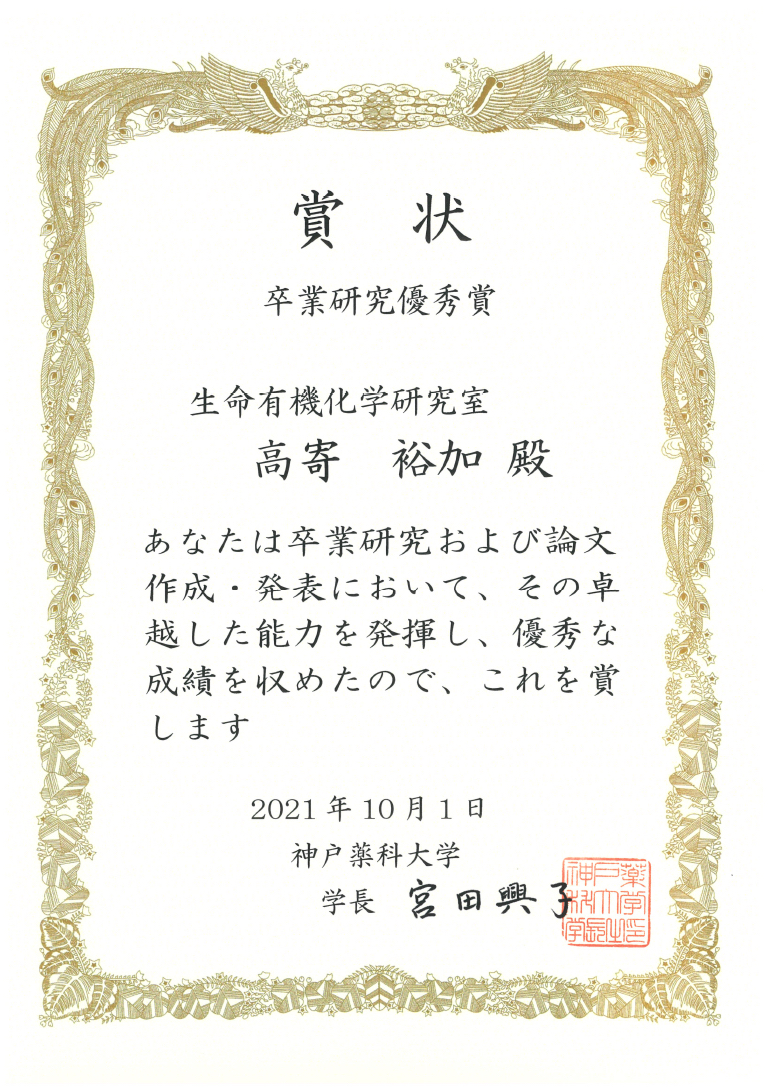 賞 状
卒業研究優秀賞
生命有機化学研究室
高寄 裕加 殿
あなたは卒業研究および論文
作成・発表において、その卓
越した能力を発揮し、優秀な
成績を収めたので、これを賞
します
2021年10月1日
神戸薬科大学
学長 宮田興子